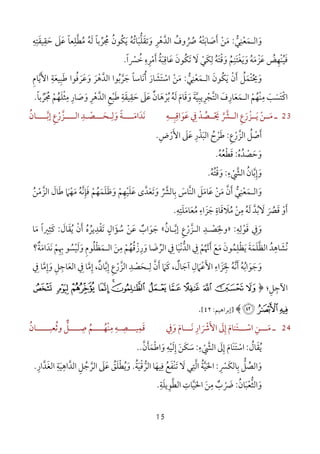 والـمَعْنِيُّ: مَنْ أَصَابَتْهُ صُرُوفُ الدَّهْرِ وَتَقَلُّبَاتُهُ يَكُونُ مُجَرِّبًا لَهُ مُطَّلِعاً عَلَى حَقِيقَتِهِ
فَيَنْهَضُ عَزْمُهُ وَيَغْتَنِمُ وَقْتَهُ لِكَيْ لَا تَكُونَ عَاقِبَةُ أَمْرِهِ خُسْراً.
وَيَحْتَمِلُ أَنْ يَكُونَ الـمَعْنِيُّ: مَنْ اسْتَشَارَ أُنَاساً جَرَّبُوا الدَّهْرَ وَعَرَفُوا طَبِيعَةَ الأَيَّامِ
اكْتَسَبَ مِنْهُمْ الـمَعَارِفَ التَّجْرِيبِيَّةَ وَقَامَ لَهُ بُرْهَانٌ عَلَى حَقِيقَةِ طَبْعِ الدَّهْرِ وَصَارَ مِثْلَهُمْ مُجَرِّباً.
23 ـ مَــنْ يَــزْرَعِ الــشَّرَّ يَحْصُــدْ فِي عَوَاقِبِــهِ نَدَامَــةً وَلِـحَــصْــدِ الــزَّرْعِ إِبَّــــانُ
أَصْلُ الزَّرْعِ: طَرْحُ البَذْرِ عَلَى الأَرْضِ.
وَحَصْدُهُ: قَطْعُهُ.
وَإِبَّانُ الشَّيْءِ: وَقْتُهُ.
وَالـمَعْنِيُّ أَنَّ مَنْ عَامَلَ النَّاسَ بِالشَّرِّ وَتَعَدَّى عَلَيْهِمْ وَظَلَمَهُمْ فَإِنَّهُ مَهْمَا طَالَ الزَّمَنُ
أَوْ قَصُرَ لَابُدَّ لَهُ مِنْ مُلَاقَاةِ جَزَاءِ مُعَامَلَتِهِ.
وَفِي قَوْلِهِ: «وَلِحَصْدِ الـزَّرْعِ إِبَّـانُ» جَوَابٌ عَنْ سُؤَالٍ تَقْدِيرُهُ أَنْ يُقَالَ: كَثِيراً مَا
نُشَاهِدُ الظَّلَمَةَ يَظْلِمُونَ مَعَ أَنَّهُمْ فِي الدُّنْيَا فِي الرِّضَا وَرِزْقُهُمْ مِنَ المَظْلُومِ وَلَيْسُو بِهِمْ نَدَامَةٌ؟
وَجَوَابُهُ أَنَّهُ لِجَزَاءِ الأَعْمَالِ آجَالٌ، كَمَا أَنَّ لِحَصْدِ الزَّرْعِ إِبَّانٌ، إِمَّا فِي العَاجِلِ وَإِمَّا فِي
الآجِلِ؛ ﴿ وَلَا تَحْسَبَنَّ اللَّهَ غَافِلًا عَمَّا يَعْمَلُ الظَّالِمُونَ إِنَّمَا يُؤَخِّرُهُمْ لِيَوْمٍ تَشْخَصُ
فِيهِ الْأَبْصَارُ ﴿٤٢﴾ ﴾ [إبراهيم: ٤٢].
24 ـ مَــنِ اسْــتَــنَامَ إِلَى الأَشْرَارِ نَــامَ وَفِي قَمِيــصِــهِ مِنْهُــــمُ صِــــلٌّ وثُعْبـــــانُ
يُقَالُ: اسْتَنَامَ إِلَى الشَّيْءِ: سَكَنَ إِلَيْهِ وَاطْمَأَنَّ..
وَالصِّلُّ بِالكَسْرِ: الحَيَّةُ الَّتِي لَا تَنْفَعُ فِيهَا الرُّقْيَةُ. وَيُطْلَقُ عَلَى الرَّجُلِ الدَّاهِيَةِ الغَدَّارِ.
وَالثُّعْبَانُ: ضَرْبٌ مِنَ الحَيَّاتِ الطَّوِيلَةِ.
15